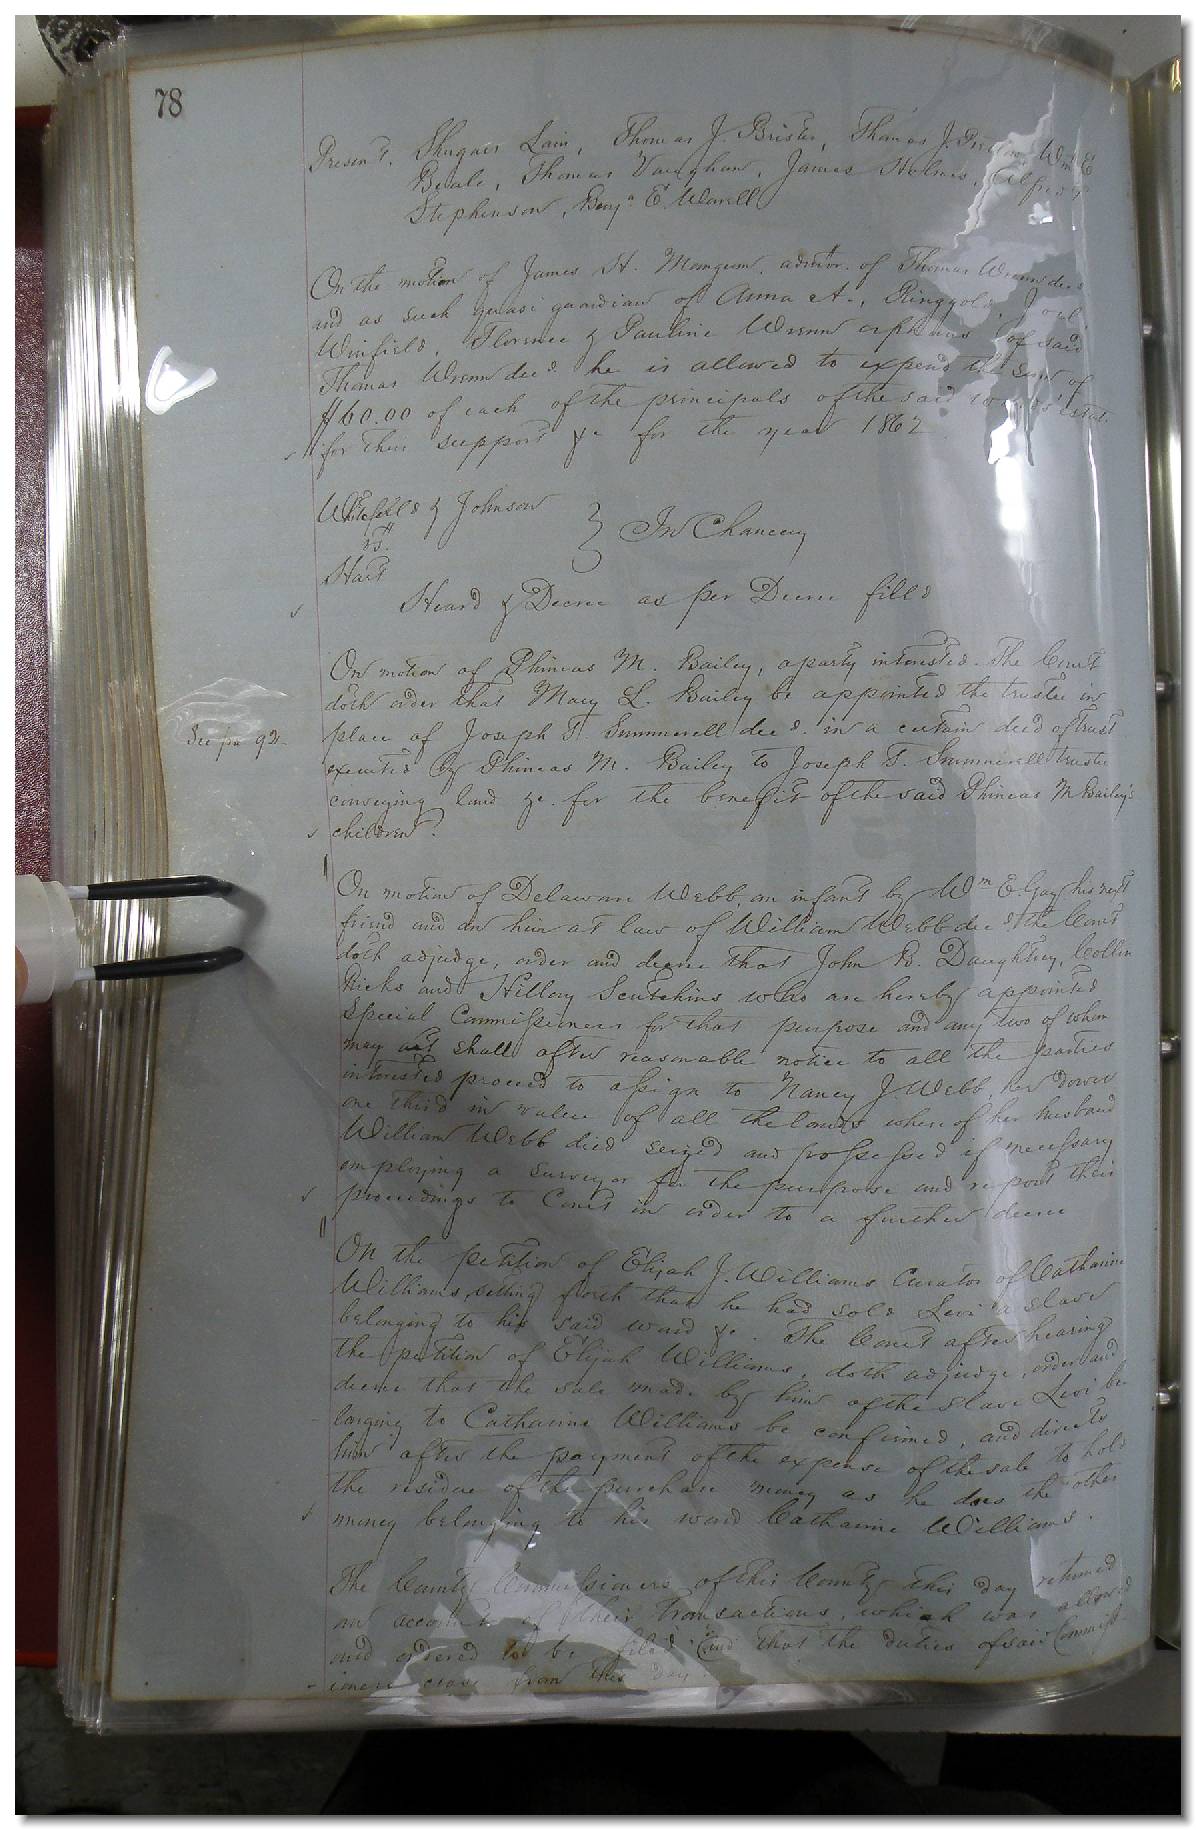 78
Present. Shugars Lain, Thomas J. Brister, Thomas J. Wm E
Beale, Thomas Vaughan, James Holmes, Alfred
Stephenson, Benja E. Worrell
On the motion of James H. Mangum, admtor. of Thomas Wrenn decd
and as such quasi guardian of Anna A., Ringgold, Joel
Winfield, Florence & Pauline Wrenn orphans of said
Thomas Wrenn decd. he is allowed to expend the sum of
$60.00 of each of the principals of the said wards' estat.
for their support &c for the year 1862
Whitfield & Johnson
vs. } In Chancery
Hart
Heard & Decree as per Decree filed
On motion of Phineas M. Bailey, a party interested. The Court
doth order that Mary L. Bailey be appointed the trustee in
See pa 92. place of Joseph T. Summerell decd. in a certain deed of trust
executed by Phineas M. Bailey to Joseph T. Summerell trustee
conveying land &c. for the benefit of the said Phineas M Bailey's
children.
On motion of Delaware Webb, an infant by Wm E. Gay his next
friend and an heir at law of William Webb decd the Court
doth adjudge, order and decree that John B. Daughtrey, Collin
Ricks and Hillory Scutchins who are hereby appointed
Special Commissioners for that purpose and any two of whom
may act shall after reasonable notice to all the parties
interested proceed to assign to Nancy J. Webb, her dower
one third in value of all the lands where of her husband
William Webb died seized and possessed if necessary
employing a surveyor for the purpose and report their
proceedings to Court in order to a further decree
On the petition of Elijah J. Williams Curator of Catharine
Williams, setting forth that he had sold Levi a slave
belonging to his said ward &c. The Court after hearing
the petition of Elijah Williams, doth adjudge, order and
decree that the sale made by him of the slave Levi be
longing to Catharine Williams be confirmed, and directs
him after the payment of the expense of the sale to hold
the residue of the purchase money as he does the other
money belonging to his ward Catharine Williams.
The County Commissioners of this County this day returned
an account of their transactions, which was allowed
and ordered to be filed and that the duties of said Commiss-
ioners cease from this day.